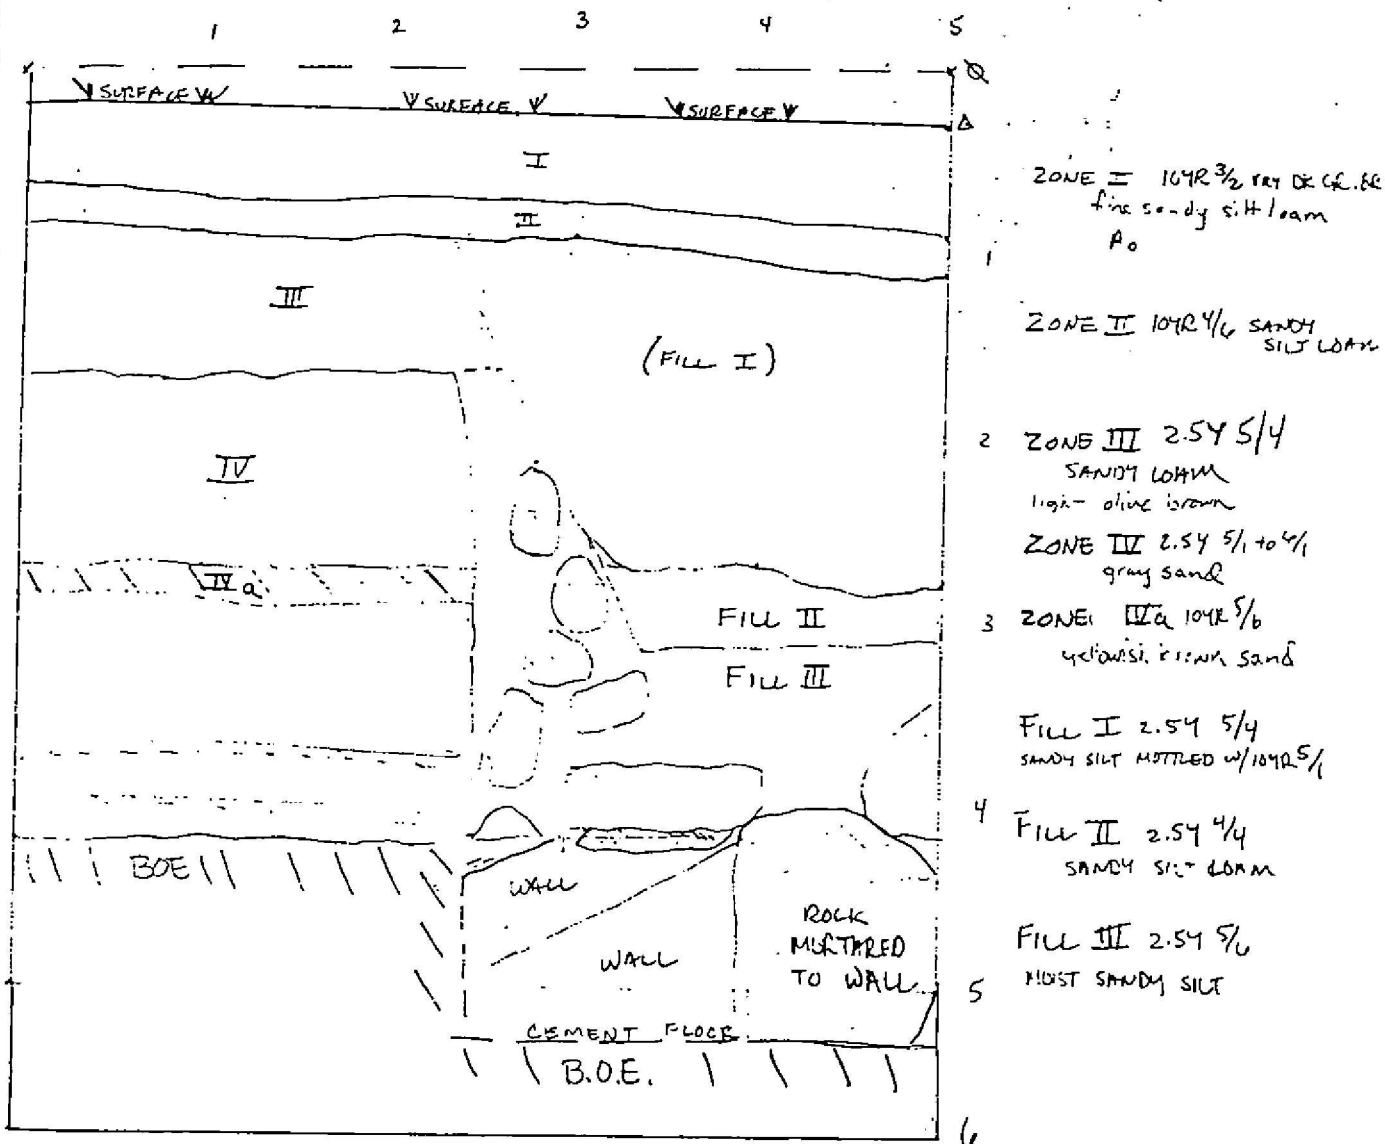 1 2 3 4 5
SURFACE SURFACE SURFACE
I
II
III
(FILL I)
IV
IVa
FILL II
FILL III
BOE
WALL
WALL
ROCK
MORTARED
TO WALL
CEMENT FLOOR
B.O.E.
1
2
3
4
5
6
ZONE I 10YR 3/2
fine sandy silt loam
A0
ZONE II 10YR 4/6 SANDY
SILT LOAM
ZONE III 2.5Y 5/4
SANDY LOAM
light olive brown
ZONE IV 2.5Y 5/1 to 6/1
gray sand
ZONE IVa 10YR 5/6
yellowish brown sand
FILL I 2.5Y 5/4
SANDY SILT MOTTLED W/10YR 5/1
FILL II 2.5Y 4/4
SANDY SILT LOAM
FILL III 2.5Y 5/6
MOIST SANDY SILT